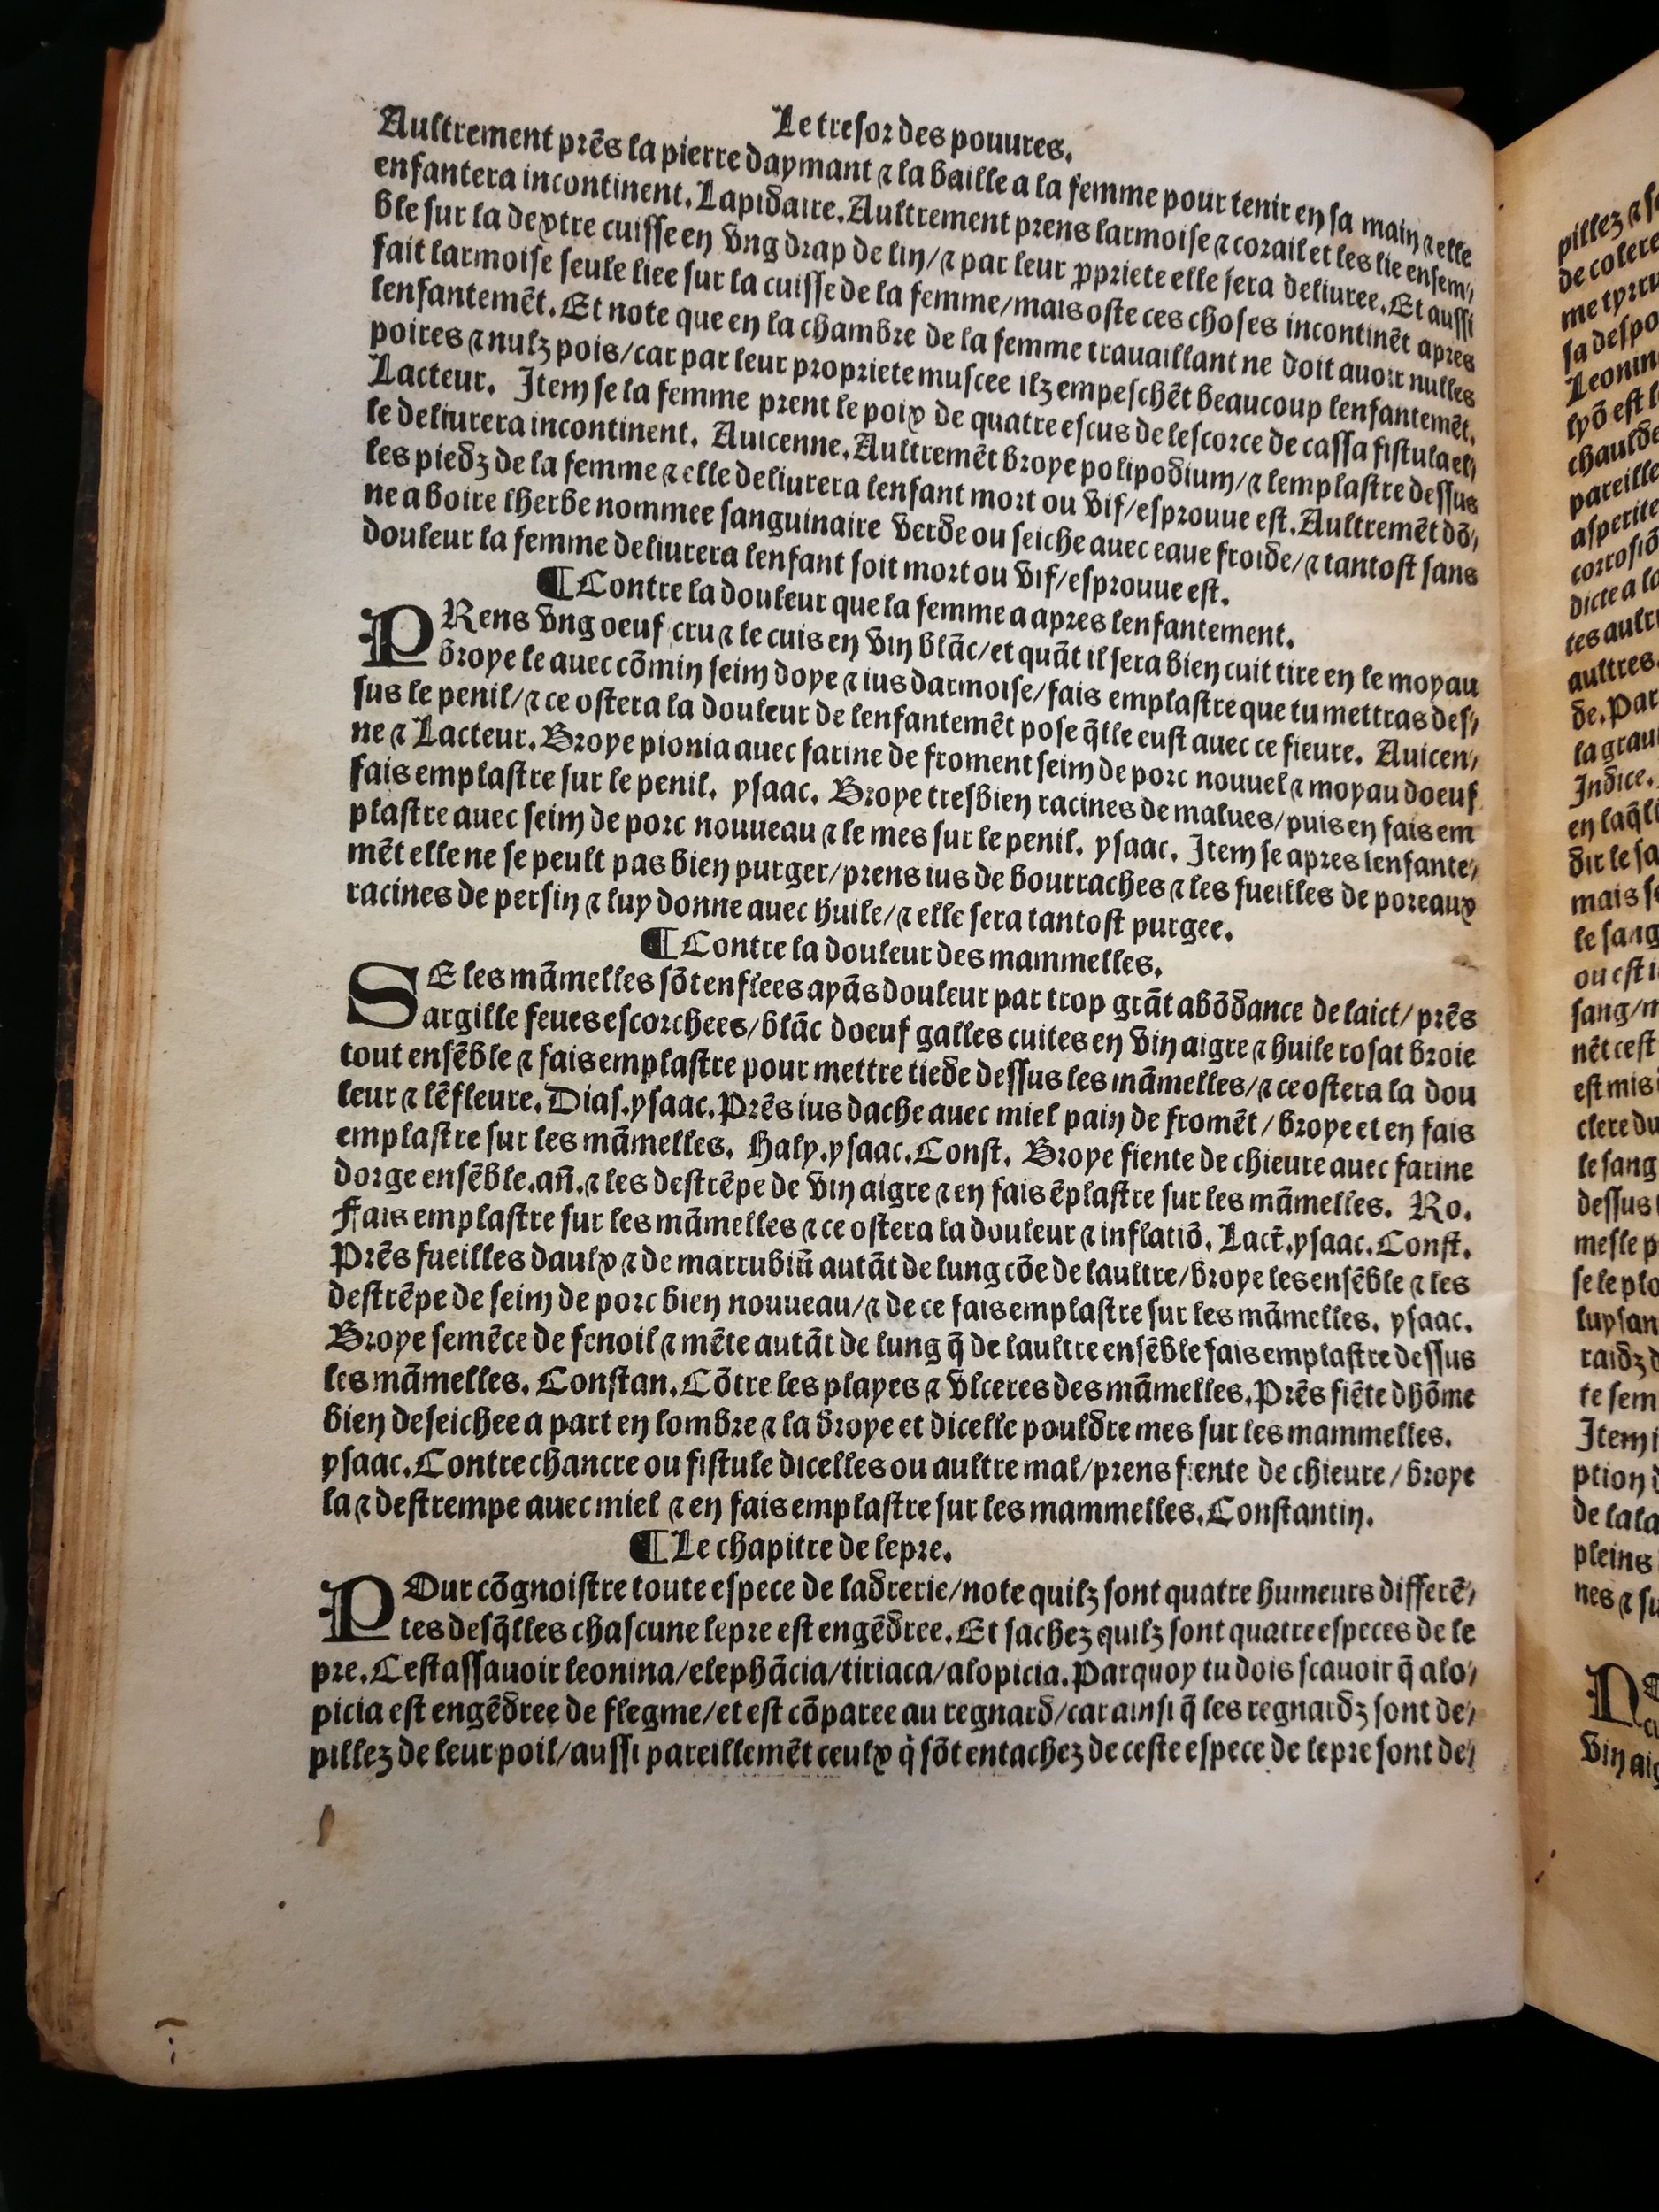 Le tresor des pouures.
Aultrement prẽs la pierre daymant ⁊ la baille a la femme pour tenir en sa main ⁊ elle
enfantera incontinent. Lapidaire. Aultrement prens larmoise ⁊ corail et les lie ensem/
ble sur la dextre cuisse en vng drap de lin/ ⁊ par leur ꝓpriete elle sera deliuree. Et aussi
fait larmoise seule liee sur la cuisse de la femme/ mais oste ces choses incontinẽt apres
lenfantemẽt. Et note que en la chambre de la femme trauaillant ne doit auoir nulles
poires ⁊ nulz pois/ car par leur propriete muscee ilz empeschẽt beaucoup lenfantemẽt.
Lacteur. Item se la femme prent le poix de quatre escus de lescorce de cassa fistula el/
le deliurera incontinent. Auicenne. Aultremẽt broye polipodium/ ⁊ lemplastre dessus
les piedz de la femme ⁊ elle deliurera lenfant mort ou vif/ esprouue est. Aultremẽt dõ/
ne a boire lherbe nommee sanguinaire verde ou seiche auec eaue froide/ ⁊ tantost sans
douleur la femme deliurera lenfant soit mort ou vif/ esprouue est.
¶ Contre la douleur que la femme a apres lenfantement.
PRens vng oeuf cru ⁊ le cuis en vin blãc/ et quãt il sera bien cuit tire en le moyau
broye le auec cõmin seim doye ⁊ ius darmoise/ fais emplastre que tu mettras des/
sus le penil/ ⁊ ce ostera la douleur de lenfantemẽt pose q̃lle eust auec ce fieure. Auicen/
ne ⁊ Lacteur. Broye pionia auec farine de froment seim de porc nouuel ⁊ moyau doeuf
fais emplastre sur le penil. ysaac. Broye tresbien racines de malues/ puis en fais em
plastre auec seim de porc nouueau ⁊ le mes sur le penil. ysaac. Item se apres lenfante/
mẽt elle ne se peult pas bien purger/ prens ius de bourraches ⁊ les fueilles de poreaux
racines de persin ⁊ luy donne auec huile/ ⁊ elle sera tantost purgee.
¶ Contre la douleur des mammelles.
SE les mãmelles sõt enflees ayãs douleur par trop grãt abõdance de laict/ prẽs
argille feues escorchees/ blãc doeuf galles cuites en vin aigre ⁊ huile rosat broie
tout ensẽble ⁊ fais emplastre pour mettre tiede dessus les mãmelles/ ⁊ ce ostera la dou
leur ⁊ lẽfleure. Dias. ysaac. Prẽs ius dache auec miel pain de fromẽt / broye et en fais
emplastre sur les mãmelles. Haly. ysaac. Const. Broye fiente de chieure auec farine
dorge ensẽble. añ. ⁊ les destrẽpe de vin aigre ⁊ en fais ẽplastre sur les mãmelles. Ro.
Fais emplastre sur les mãmelles ⁊ ce ostera la douleur ⁊ inflatiõ. Lact̃. ysaac. Const.
Prẽs fueilles daulx ⁊ de marrubiũ autãt de lung cõe de laultre/ broye les ensẽble ⁊ les
destrẽpe de seim de porc bien nouueau/ ⁊ de ce fais emplastre sur les mãmelles. ysaac.
Broye semẽce de fenoil ⁊ mẽte autãt de lung q̃ de laultre ensẽble fais emplastre dessus
les mãmelles. Constan. Cõtre les playes ⁊ vlceres des mãmelles. Prẽs fiẽte dhõme
bien deseichee a part en lombre ⁊ la broye et dicelle pouldre mes sur les mammelles.
ysaac. Contre chancre ou fistule dicelles ou aultre mal/ prens fiente de chieure / broye
la ⁊ destrempe auec miel ⁊ en fais emplastre sur les mammelles. Constantin.
¶ Le chapitre de lepre.
POur cõgnoistre toute espece de ladrerie/ note quilz sont quatre humeurs differẽ/
tes desq̃lles chascune lepre est engẽdree. Et sachez quilz sont quatre especes de le
pre. Cest assauoir leonina/ elephãcia/ tiriaca/ alopicia. Parquoy tu dois scauoir q̃ alo/
picia est engẽdree de flegme/ et est cõparee au regnard/ car ainsi q̃ les regnardz sont de/
pillez de leur poil/ aussi pareillemẽt ceulx q̇ sõt entachez de ceste espece de lepre sont de/